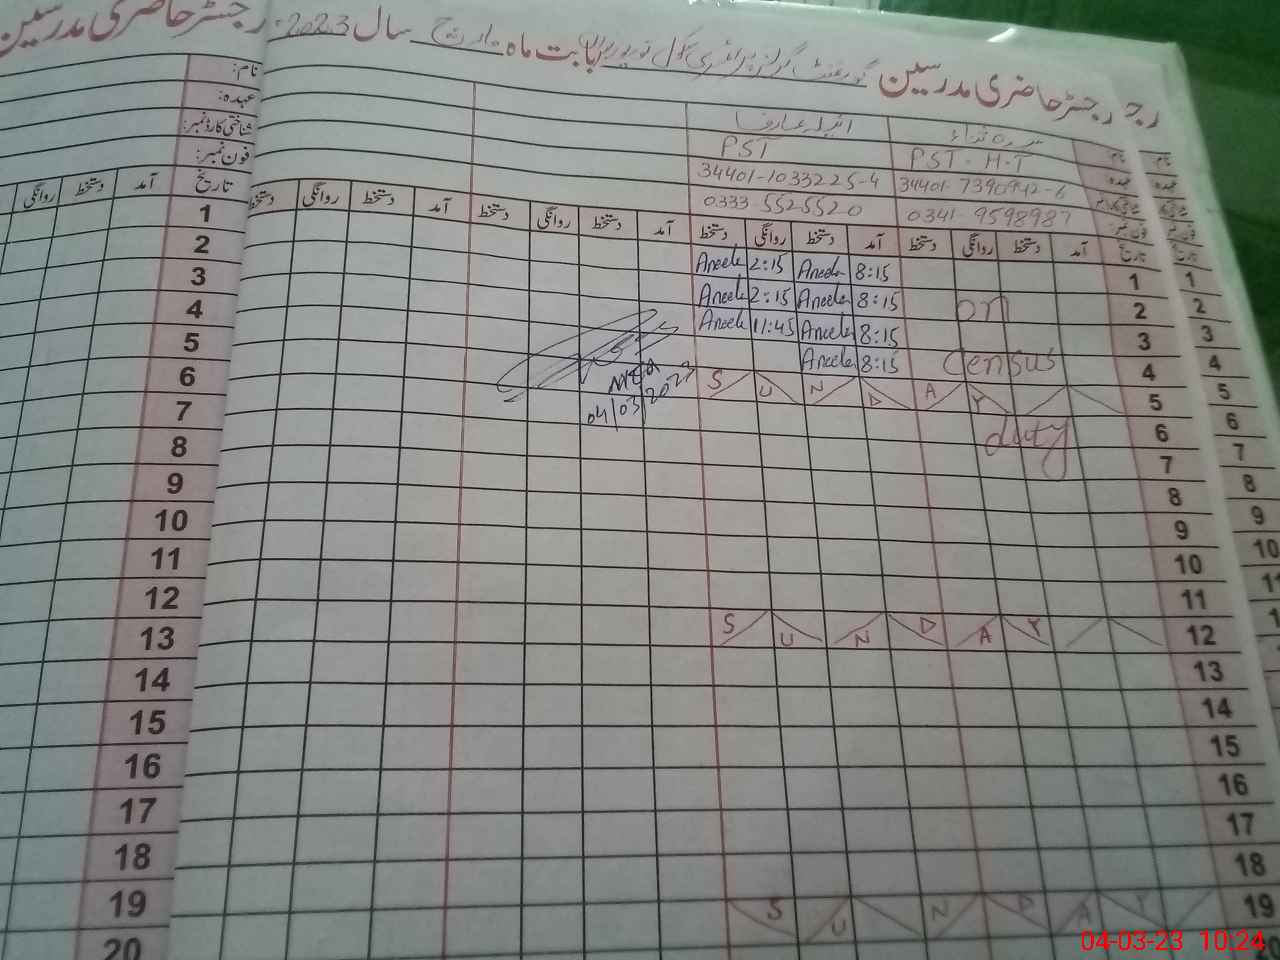 رجسٹر حاضری مدرسین گورنمنٹ گرلز پرائمری سکول بابت ماہ مارچ سال 2023
رجسٹر حاضری مدرسین
نام:
عہدہ:
شناختی کارڈ نمبر:
فون نمبر:
تاریخ
آمد دستخط روانگی
انیلہ عارف
PST · H·T PST
34401-7390942-6 34401-1033225-4
0341-9598987 0333-5525520
تاریخ آمد دستخط روانگی دستخط آمد دستخط روانگی دستخط آمد دستخط روانگی دستخط آمد دستخط روانگی دستخط
1 8:15 Aneela 2:15 Aneela
2 on 8:15 Aneela 2:15 Aneela
3 8:15 Aneela 11:45 Aneela
4 Census 8:15 Aneela
MEA
04/03/2023
5 S U N D A Y
6 duty
7
8
9
10
11
12 S U N D A Y
13
14
15
16
17
18
19 S U N D A Y
1
2
3
4
5
6
7
8
9
10
11
12
13
14
15
16
17
18
19
20
1
2
3
4
5
6
7
8
9
10
11
04-03-23 10:24